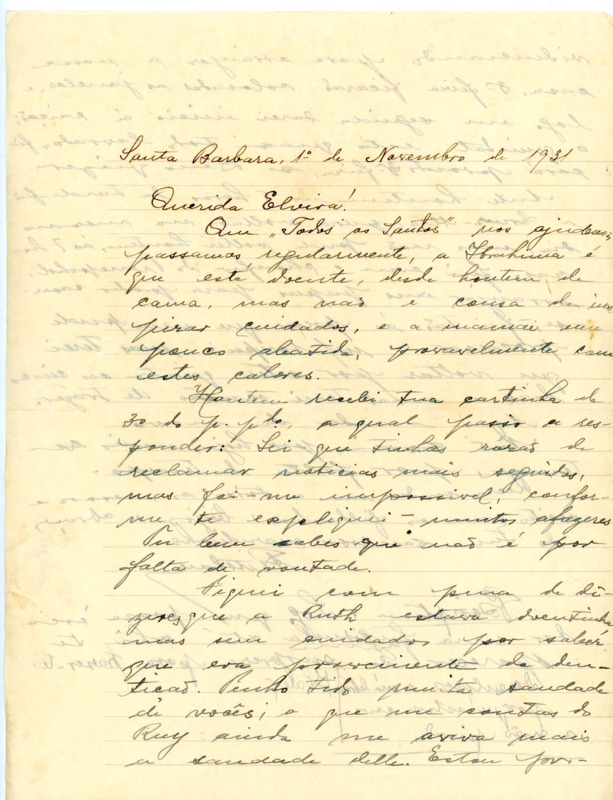 Santa Barbara, 1º de Novembro de 1931
Querida Elvira!
Que "Todos os Santos" nos ajudem,
passamos regularmente, a é
que esta doente, desde hontem de
cama, mas não é cousa de ins-
pirar cuidados, e a mamãe um
pouco abatida, provavelmente com
estes calores.
Hontem recebi tua cartinha de
30 do p. pdo, a qual passo a res-
ponder: Sei que tinhas razão de
reclamar noticias mais seguidas,
mas foi me impossivel, confor-
me te expliquei — muitos afazeres
bem sabes que não é por
falta de vontade.
Fiquei com pena de di-
zeres que a Ruth estava doentinha
mas sem cuidados, por saber
que era da den-
tição. Tenho tido muita saudade
de vocês, o que me contas do
Ruy ainda me aviva mais
a saudade delle. Estou